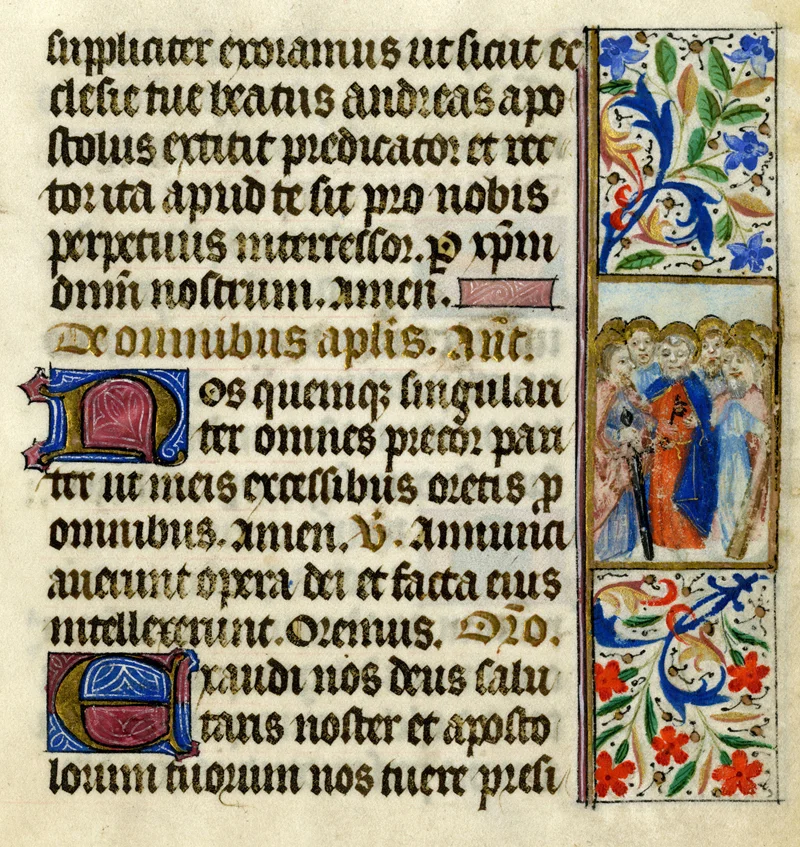 suppliciter exoramus ut sicut ec
clesie tue beatus andreas apo
stolus extitit predicator et rec
tor ita apud te sit pro nobis
perpetuus intercessor. p̱ xp̄m
dnm̄ nostrum. Amen.
De omnibus apl̄is. Añt.
Nos quemqꝫ singulari
ter omnes precor pari
ter ut meis excessibus oretis ꝓ
omnibus. Amen. V̇. Annunci
auerunt opera dei et facta eius
intellexerunt. Oremus. Or̄o.
Exaudi nos deus salu
taris noster et aposto
lorum tuorum nos tuere presi